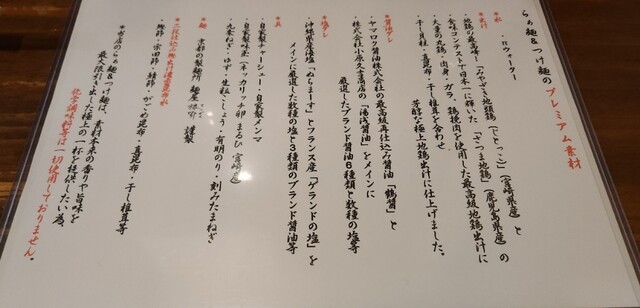 らぁ麺&つけ麺のプレミアム素材
*水
・πウォーター
*出汁
・地鶏の最高峰「みやざき地頭鶏(じとっこ)」(宮崎県産)と
食味コンテストで日本一に輝いた「さつま地鶏」(鹿児島県産)の
大量の丸鶏・肉身・ガラ、鶏挽肉を使用した最高級地鶏出汁に
干し貝柱・真昆布・干し椎茸を合わせ
芳醇な極上地鶏出汁に仕上げました。
*醤油ダレ
・ヤマロク醤油株式会社の最高級再仕込み醤油「鶴醤」と
株式会社小原久吉商店の「湯浅醤油」をメインに
厳選したブランド醤油6種類と数種の塩等
*塩ダレ
・沖縄県産海塩「ぬちまーす」とフランス産「ゲランドの塩」を
メインに厳選した数種の塩と3種類のブランド醤油等
*具
・自家製チャーシュー・自家製メンマ
・自家製味玉(ネックリッチ卵まるひ 宮崎産)
・九条ねぎ・ゆず・生粒こしょう・有明のり・刻みたまねぎ
*麺
・京都の製麺所 麺屋 棣鄂 謹製
*二段仕込み鰹出汁濃密昆布水
・鰹節・宗田節・鯖節・がごめ昆布・真昆布・干し椎茸等
*当店のらぁ麺&つけ麺は、素材本来の香りや旨味を
最大限引き出した極上の一杯を提供したい為、
化学調味料等は一切使用しておりません。